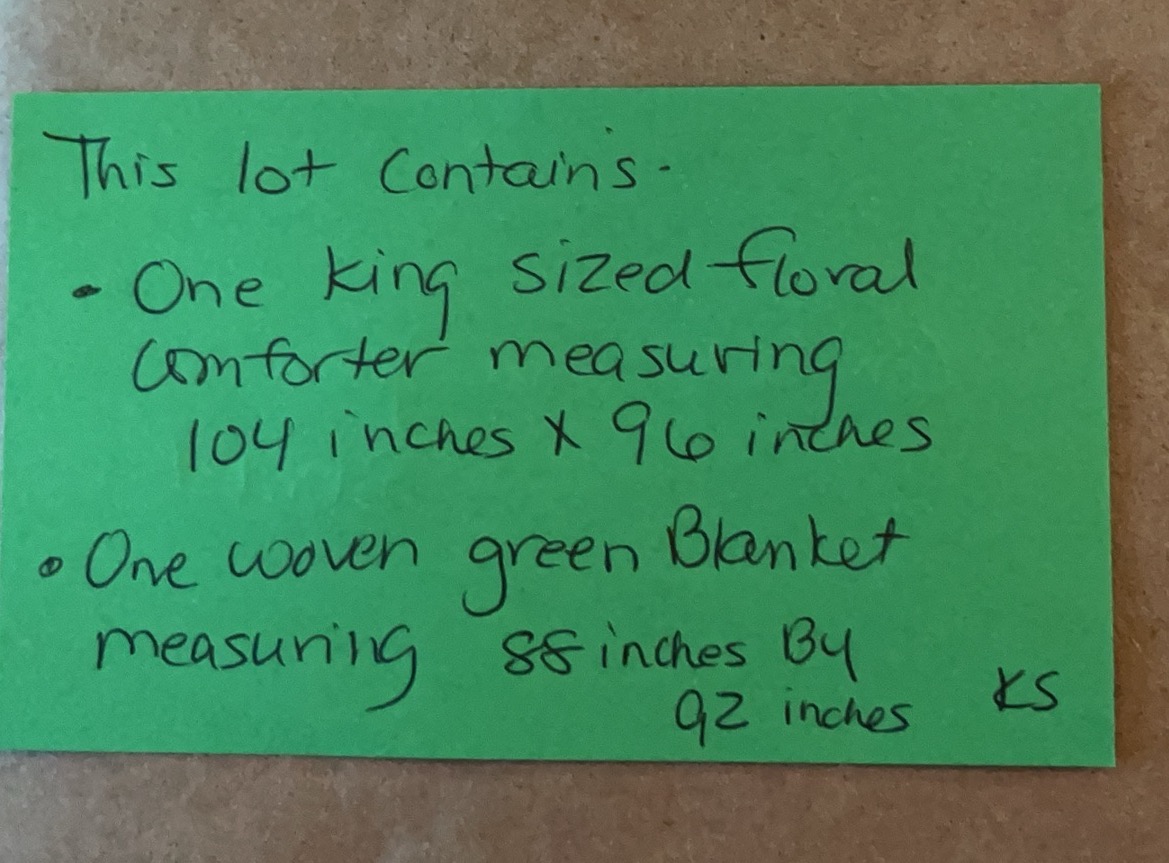 This lot Contains.
• One king sized floral
comforter measuring
104 inches x 96 inches
• One woven green Blanket
measuring 88 inches By
92 inches KS